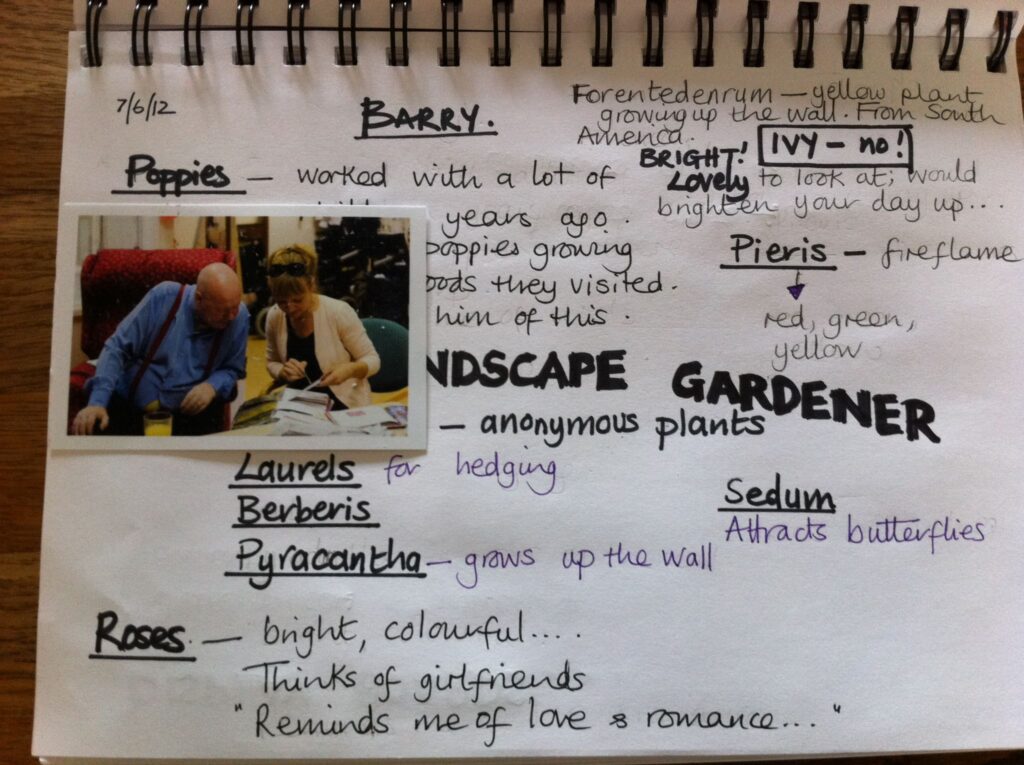 7/6/12
BARRY.
Forentedenrum — yellow plant
growing up the wall. From South
America.
IVY – no!
BRIGHT!
Lovely to look at; would
brighten your day up...
Poppies — worked with a lot of
years ago.
poppies growing
they visited.
him of this.
Pieris — fireflame
red, green,
yellow
NDSCAPE GARDENER
— anonymous plants
Laurels for hedging
Berberis
Pyracantha — grows up the wall
Sedum
Attracts butterflies
Roses. — bright, colourful....
Thinks of girlfriends
"Reminds me of love & romance..."